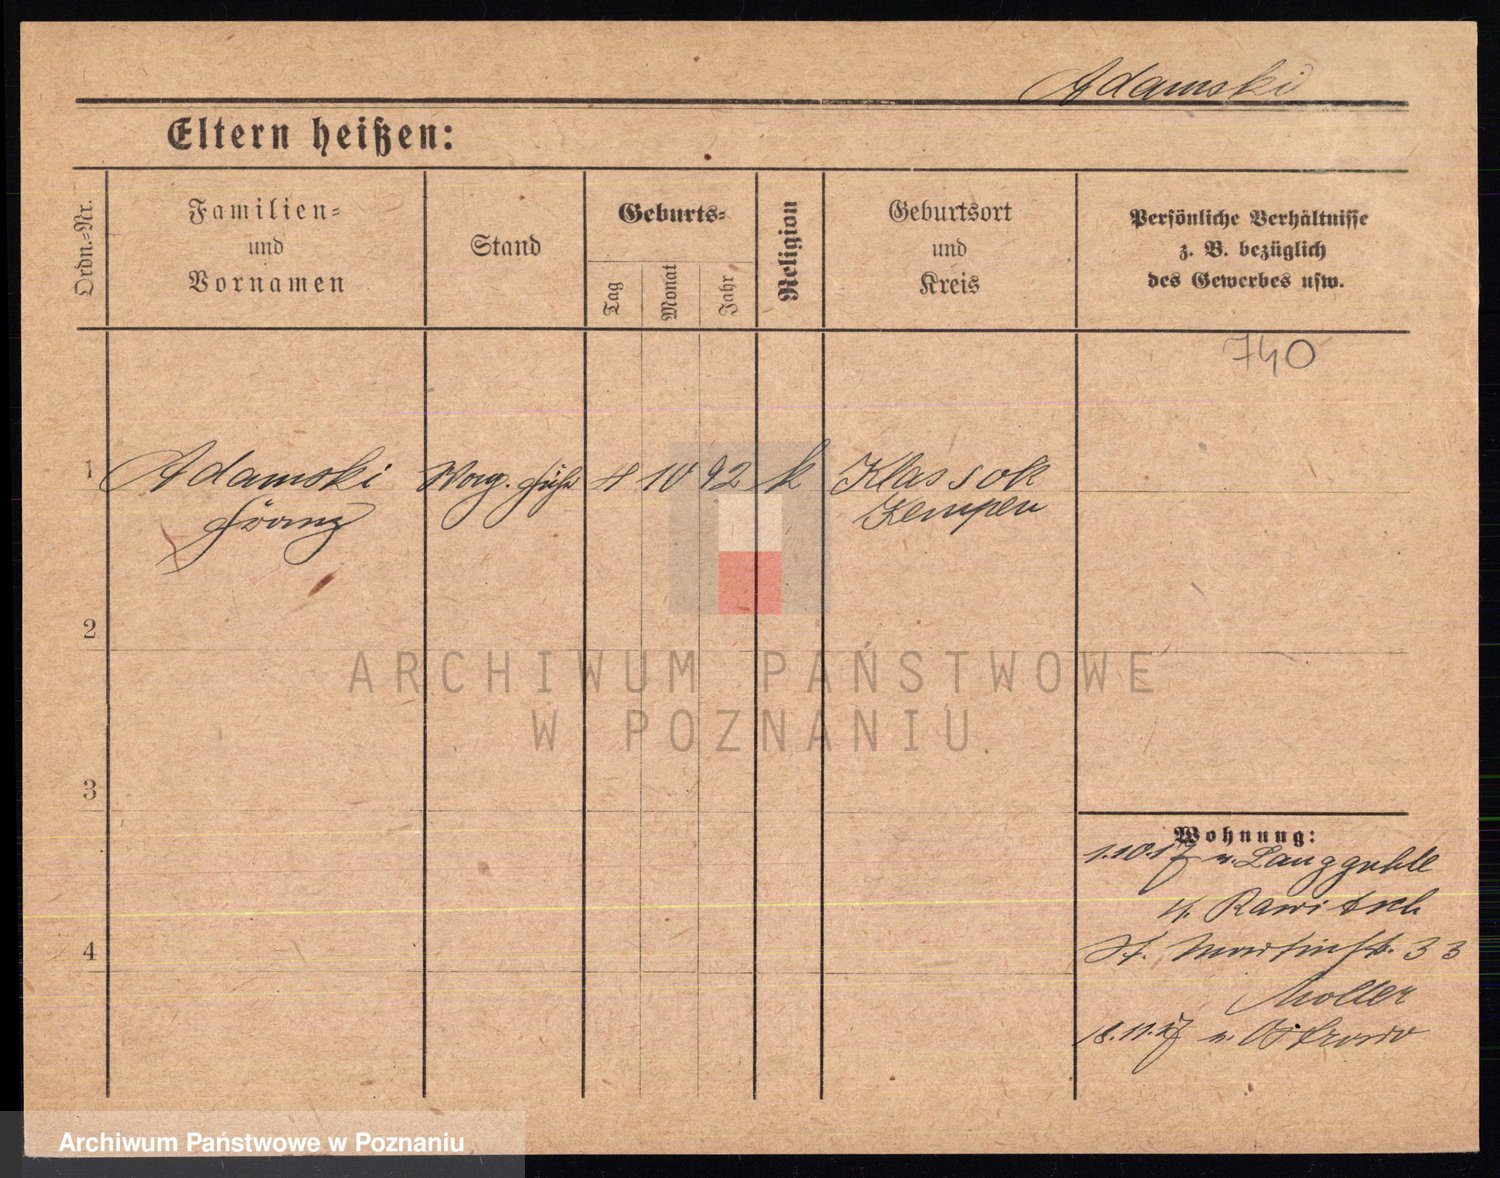 Adamski
Eltern heißen:
Ordn.-Nr.
Familien-
und
Vornamen
Stand
Geburts-
Tag
Monat
Jahr
Religion
Geburtsort
und
Kreis
Persönliche Verhältnisse
z. B. bezüglich
des Gewerbes usw.
740
1 Adamski 4 10 92 k Klassok
Franz Kempen
2
3
4
Wohnung:
1.10.17 v. Langguhle
Kr. Rawitsch
St. Martinstr. 33
Moller
18.11.17 n. Ostrowo
ARCHIWUM PAŃSTWOWE
W POZNANIU
Archiwum Państwowe w Poznaniu